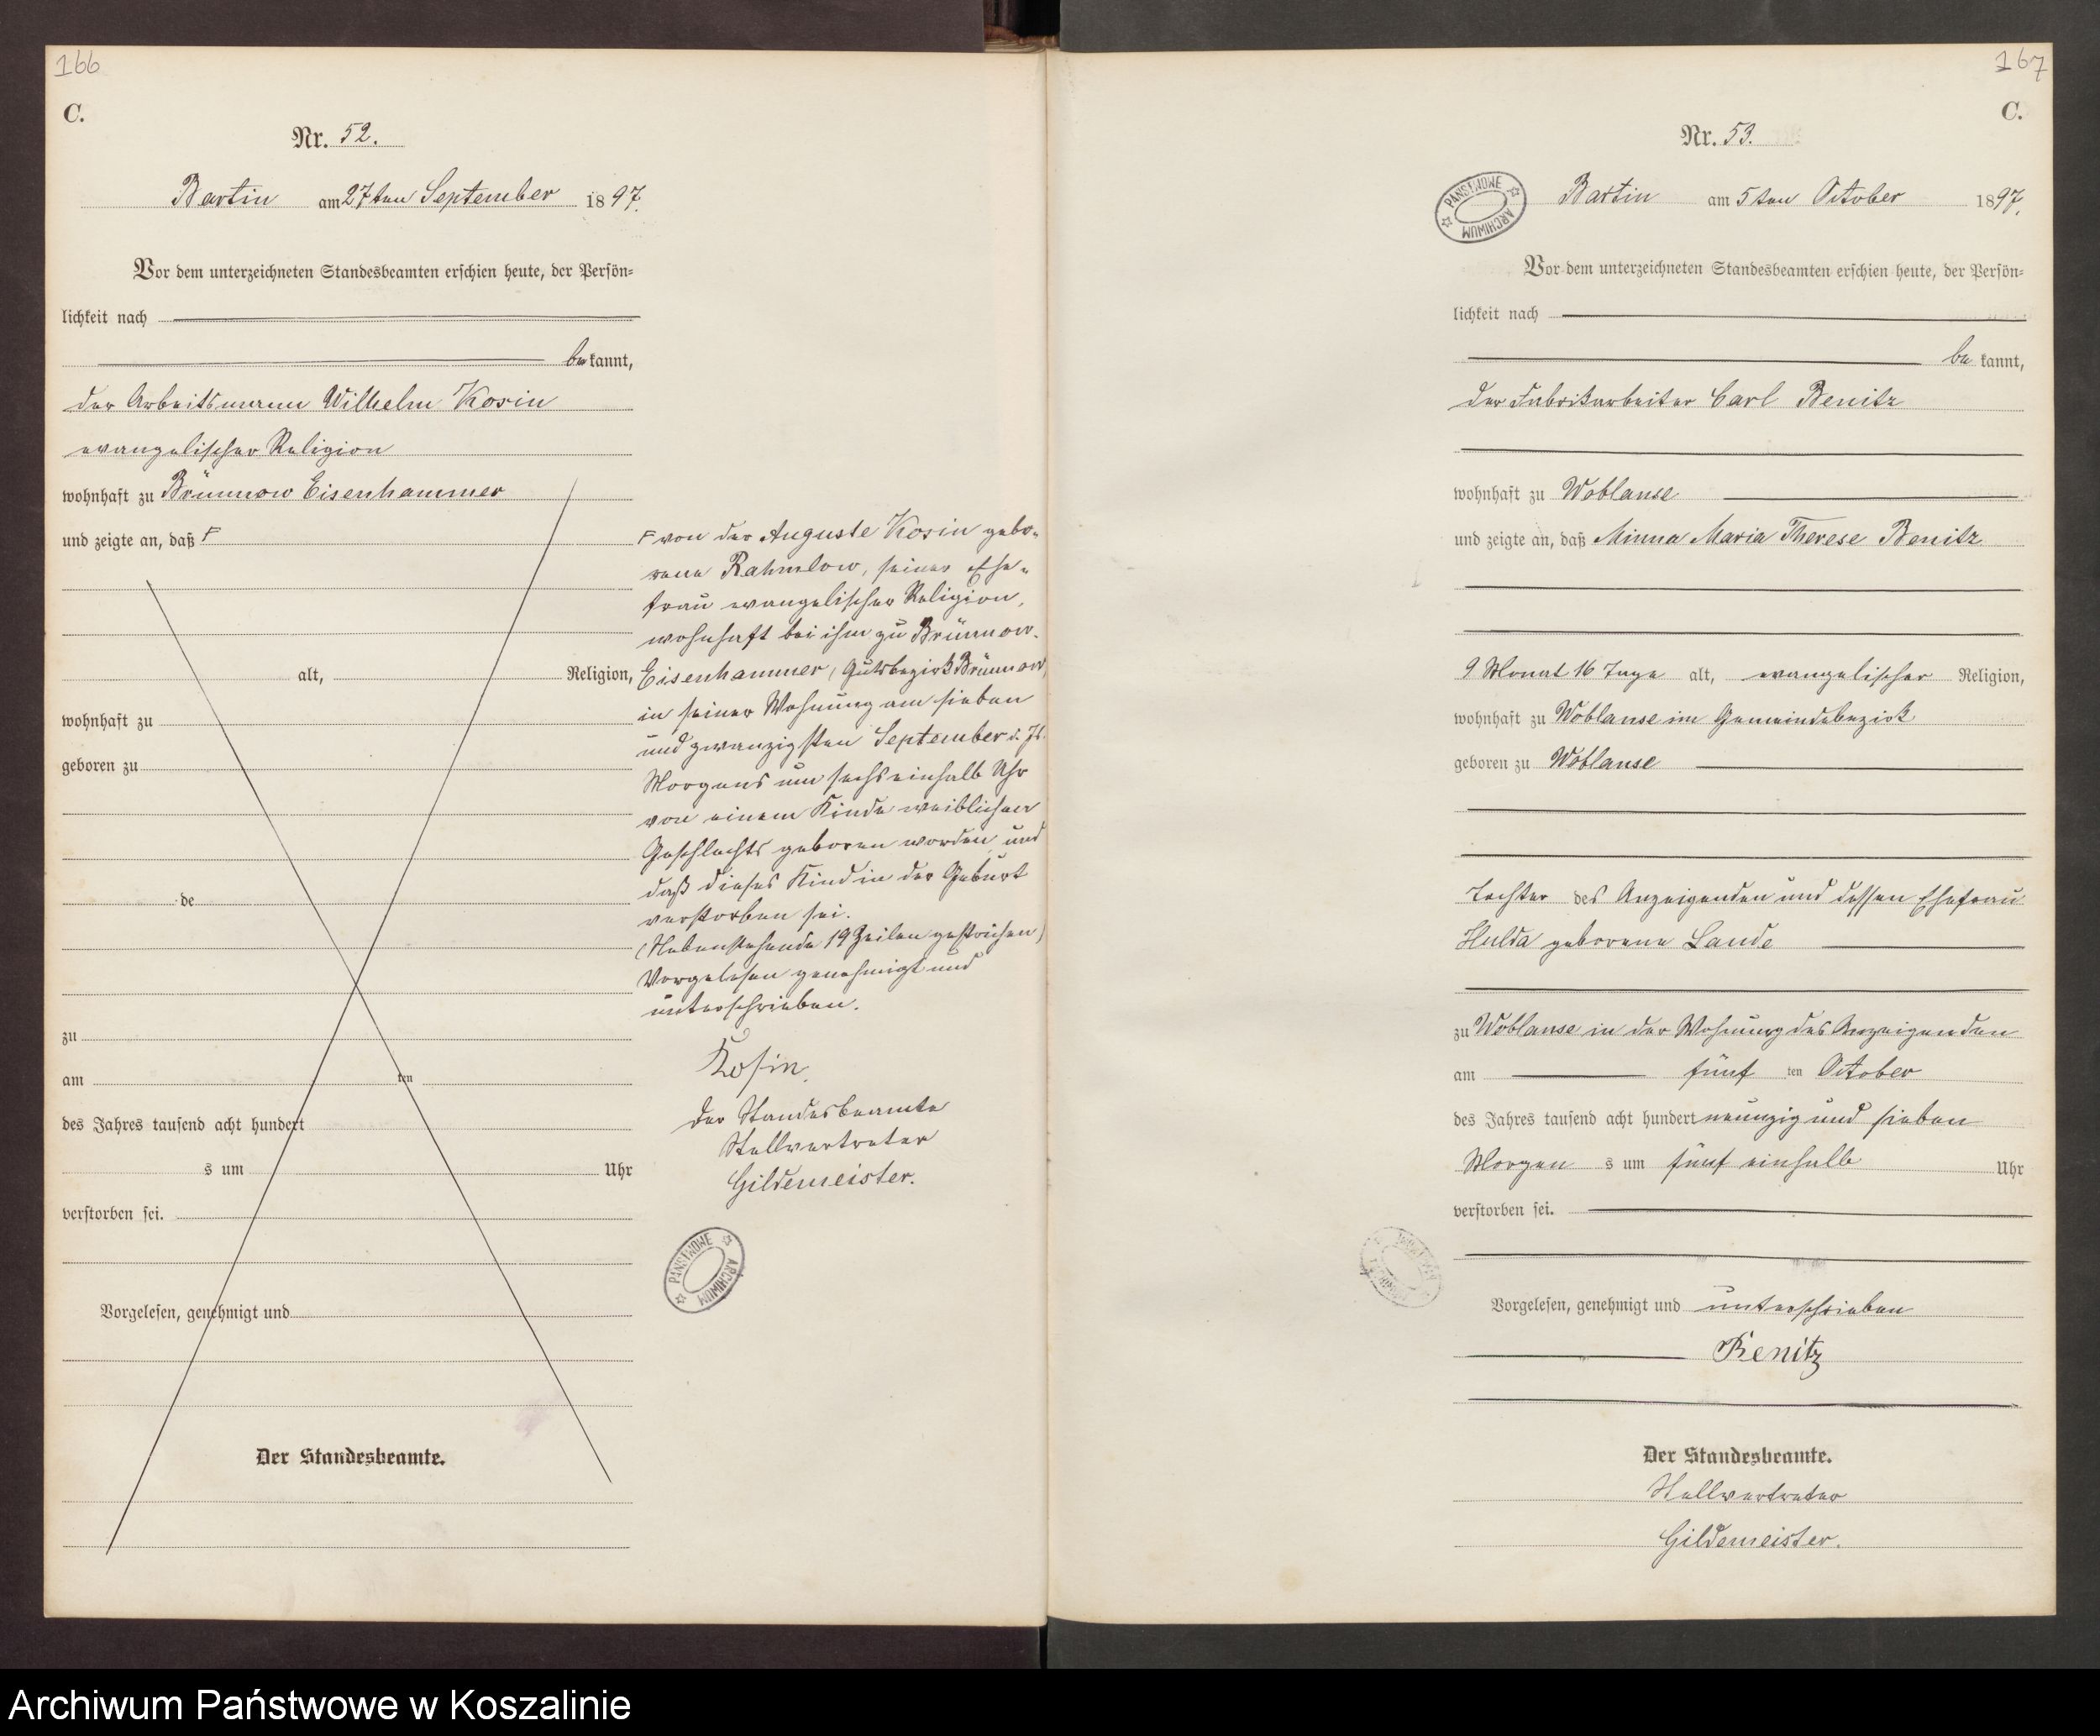 166
C.
Nr. 52.
Bartin am 27ten September 1897.
Vor dem unterzeichneten Standesbeamten erschien heute, der Persön-
lichkeit nach
bekannt,
der Arbeitsmann Wilhelm Kosin
evangelischer Religion
wohnhaft zu Brünnow Eisenhammer
und zeigte an, daß F
alt, Religion,
wohnhaft zu
geboren zu
de
zu
am ten
des Jahres tausend acht hundert
s um Uhr
verstorben sei.
Vorgelesen, genehmigt und
Der Standesbeamte.
F von der Auguste Kosin gebo-
rene Rahmlow, seiner Ehe-
frau evangelischer Religion,
wohnhaft bei ihm zu Brünnow-
Eisenhammer, Gutsbezirk Brünnow,
in seiner Wohnung am sieben
und zwanzigsten September d. Js.
Morgens um sechs einhalb Uhr
von einem Kinde weiblichen
Geschlechts geboren worden und
daß dieses Kind in der Geburt
verstorben sei.
(Nebenstehende 19 Zeilen gestrichen)
Vorgelesen genehmigt und
unterschrieben.
Kosin.
Der Standesbeamte
Stellvertreter
Gildemeister.
PAŃSTWOWE ARCHIWUM
167
C.
Nr. 53.
PAŃSTWOWE ARCHIWUM
Bartin am 5ten October 1897.
Vor dem unterzeichneten Standesbeamten erschien heute, der Persön-
lichkeit nach
bekannt,
der Fabrikarbeiter Carl Benitz
wohnhaft zu Woblanse
und zeigte an, daß Minna Maria Therese Benitz
9 Monat 16 Tage alt, evangelischer Religion,
wohnhaft zu Woblanse im Gemeindebezirk
geboren zu Woblanse
Tochter des Anzeigenden und dessen Ehefrau
Hulda geborene Lande
zu Woblanse in der Wohnung des Anzeigenden
am fünf ten October
des Jahres tausend acht hundert neunzig und sieben
Morgen s um fünf einhalb Uhr
verstorben sei.
Vorgelesen, genehmigt und unterschrieben
Benitz
Der Standesbeamte.
Stellvertreter
Gildemeister.
Archiwum Państwowe w Koszalinie